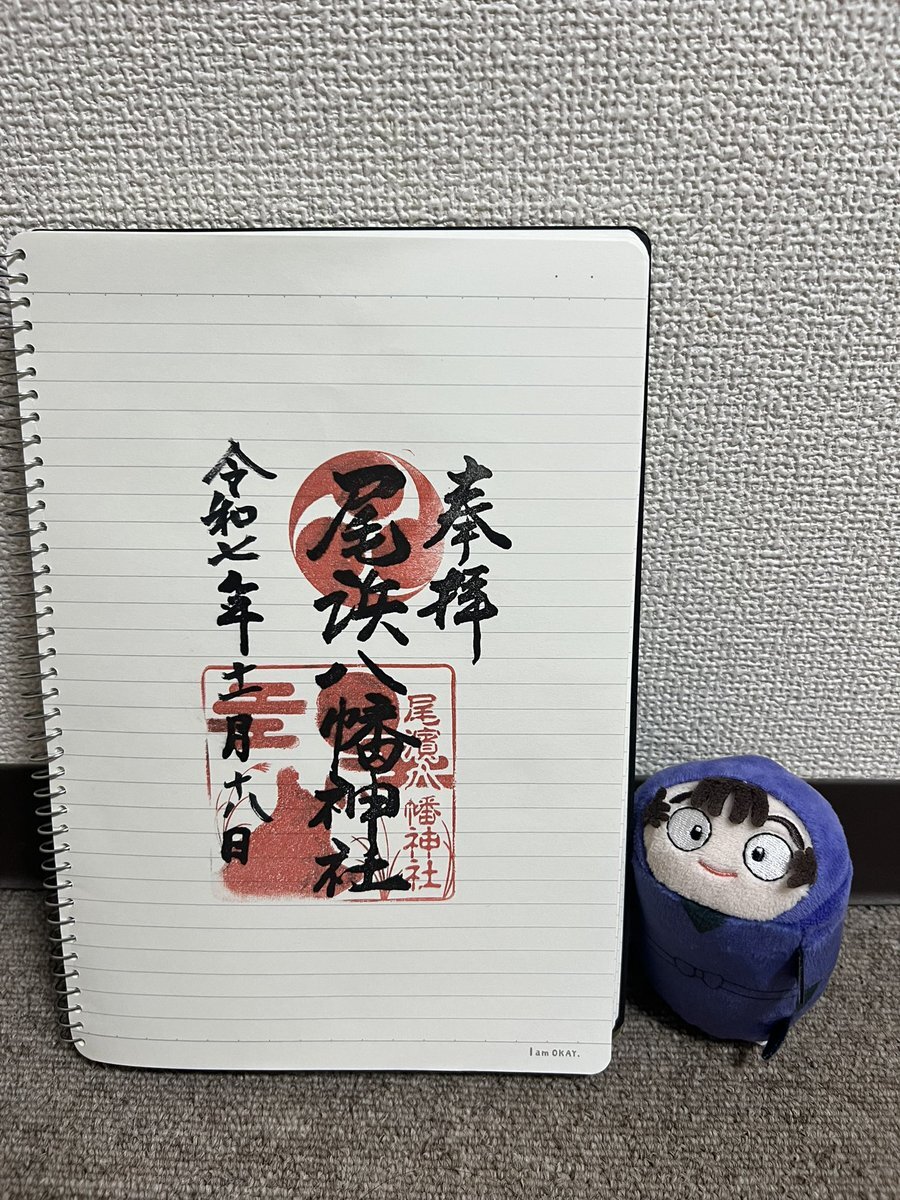 奉拝
尾浜八幡神社
尾濱八幡神社
令和七年十一月十八日
I am OKAY.